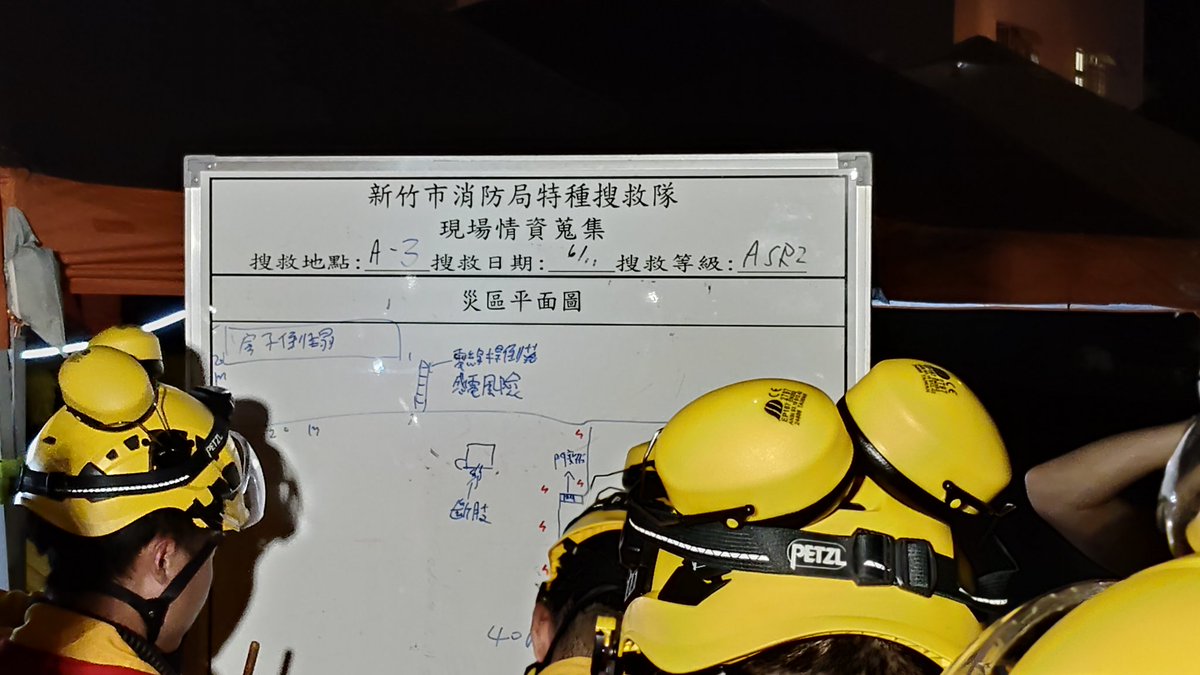 新竹市消防局特種搜救隊
現場情資蒐集
搜救地點:A-3 搜救日期:6/11 搜救等級:ASR2
災區平面圖
房子倒塌
電線桿倒落
感電風險
20 m
斷肢
PETZL
PETZL